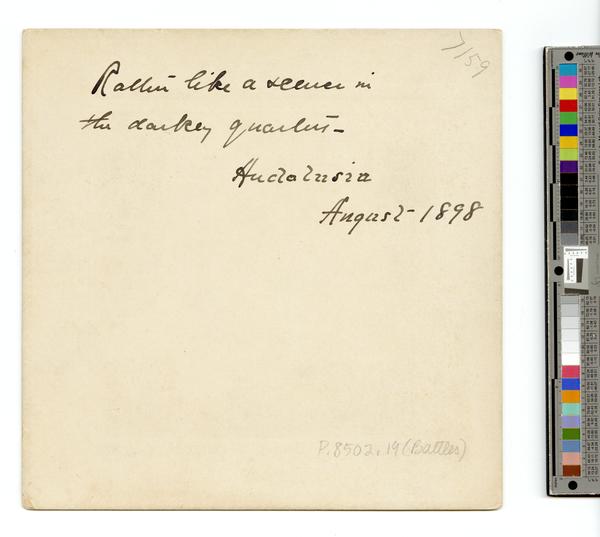 7/59
Rather like a scene in
the darkey quarters –
Andalusia
August – 1898
P.8502.19 (Battles)